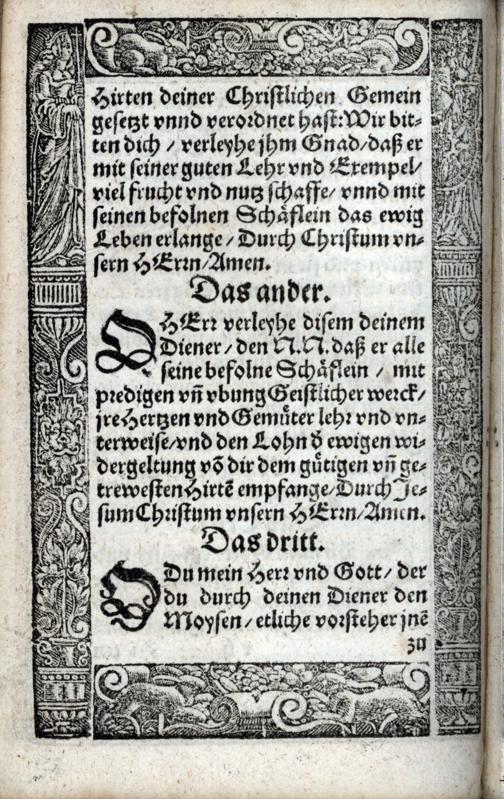 Hirten deiner Christlichen Gemein
gesetzt vnnd verordnet hast: Wir bit-
ten dich / verleyhe jhm Gnad / daß er
mit seiner guten Lehr vnd Exempel /
viel frucht vnd nutz schaffe / vnnd mit
seinen befolnen Schäflein das ewig
Leben erlange / Durch Christum vn-
sern HErrn / Amen.
Das ander.
O HErr verleyhe disem deinem
Diener / den N.N. daß er alle
seine befolne Schäflein / mit
predigen vñ vbung Geistlicher werck /
jre Hertzen vnd Gemüter lehr vnd vn-
terweise / vnd den Lohn d̄ ewigen wi-
dergeltung võ dir dem gütigen vñ ge-
trewesten Hirtẽ empfange / Durch Je-
sum Christum vnsern HErrn / Amen.
Das dritt.
O Du mein Herr vnd Gott / der
du durch deinen Diener den
Moysen / etliche vorsteher jnẽ
zu